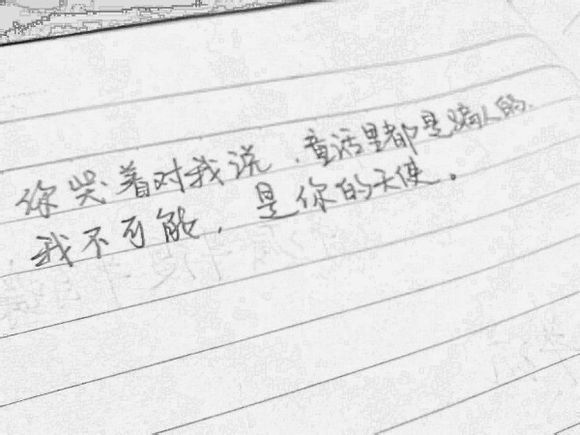 你哭着对我说,童话里都是骗人的.
我不可能,是你的天使。